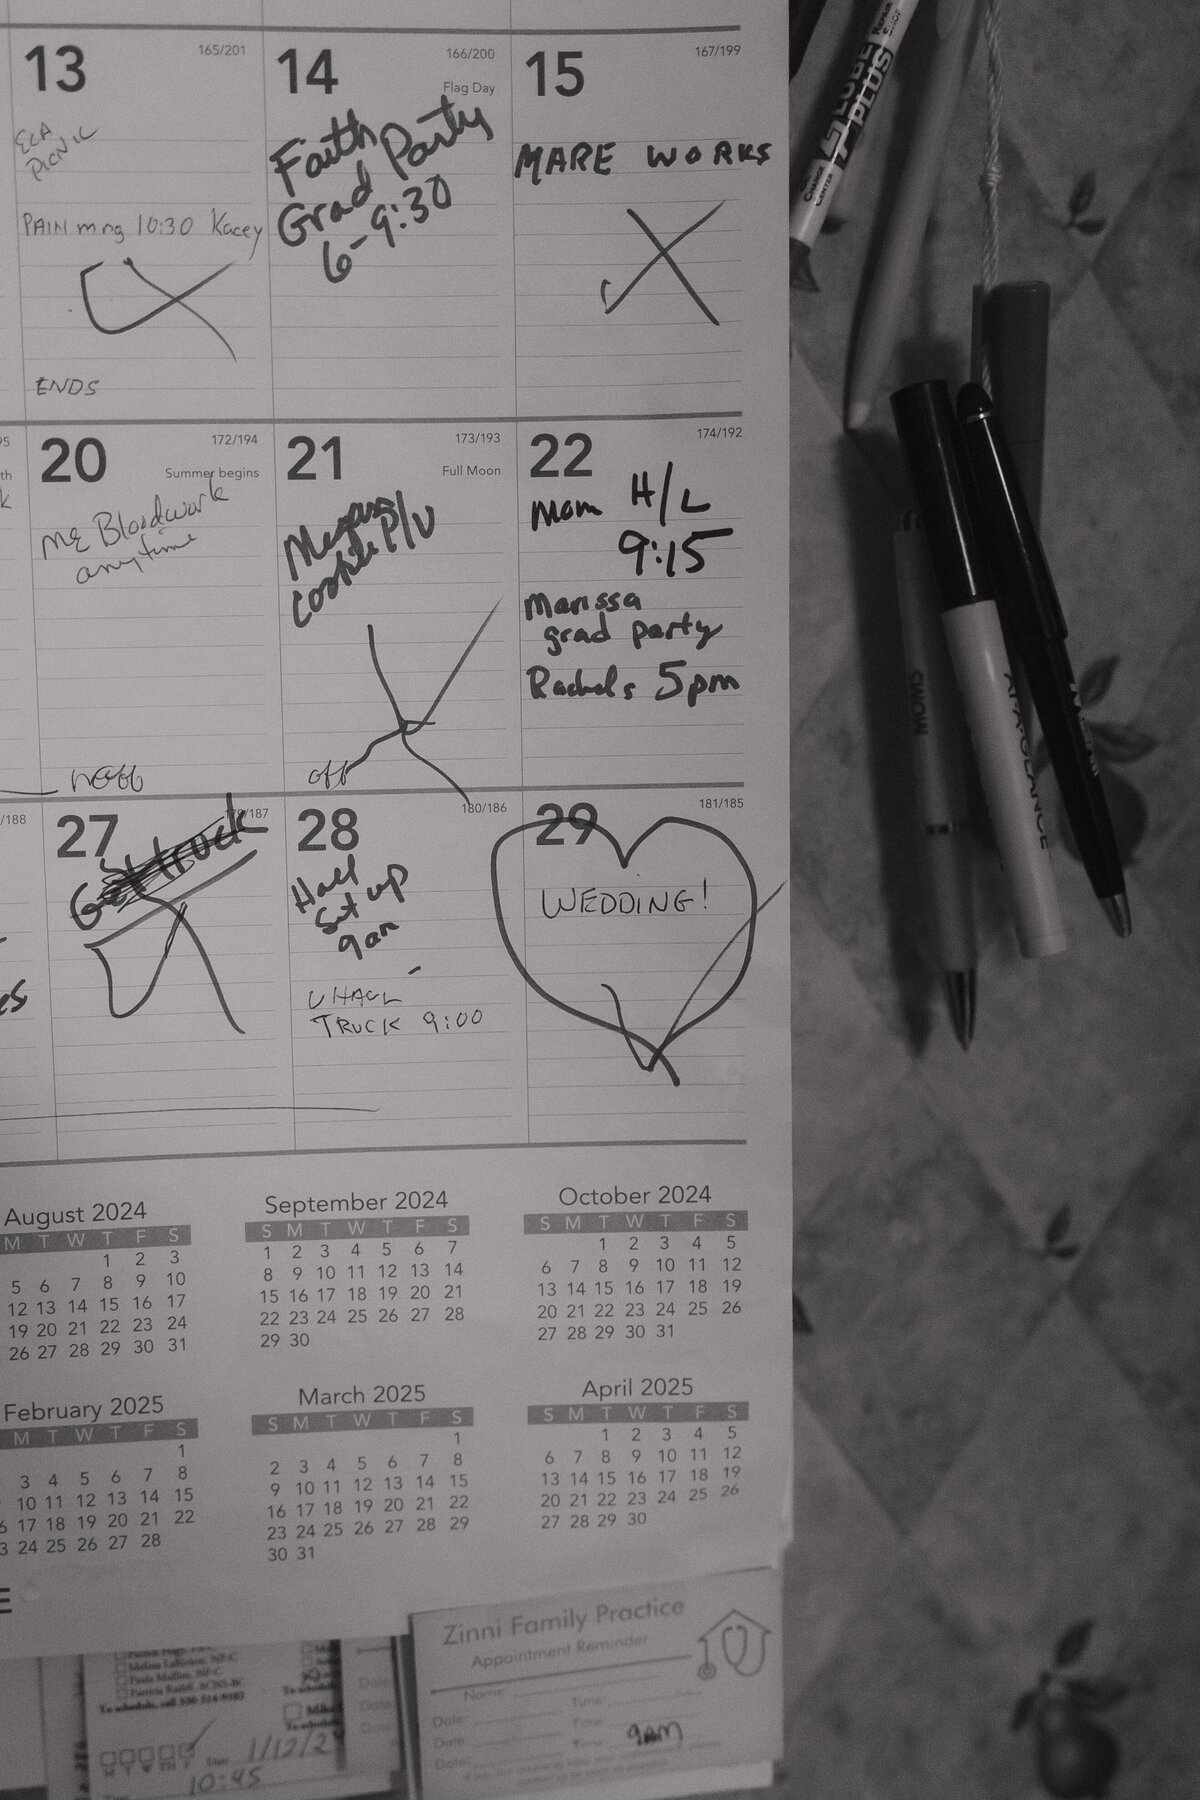 13
165/201
ECA
PICNIC
PAIN mng 10:30 Kacey
ENDS
14
166/200
Flag Day
Faith
Grad Party
6-9:30
15
167/199
MARE WORKS
20
172/194
Summer begins
ME Bloodwork
anytime
21
173/193
Full Moon
Megans
cookie P/U
off
22
174/192
Mom H/L
9:15
Marissa
grad party
Rachels 5pm
/188
27
179/187
Get truck
28
180/186
Hall
Set up
9am
UHAUL
TRUCK 9:00
29
181/185
WEDDING!
August 2024
M T W T F S
1 2 3
5 6 7 8 9 10
12 13 14 15 16 17
19 20 21 22 23 24
26 27 28 29 30 31
September 2024
S M T W T F S
1 2 3 4 5 6 7
8 9 10 11 12 13 14
15 16 17 18 19 20 21
22 23 24 25 26 27 28
29 30
October 2024
S M T W T F S
1 2 3 4 5
6 7 8 9 10 11 12
13 14 15 16 17 18 19
20 21 22 23 24 25 26
27 28 29 30 31
February 2025
M T W T F S
1
3 4 5 6 7 8
10 11 12 13 14 15
17 18 19 20 21 22
24 25 26 27 28
March 2025
S M T W T F S
1
2 3 4 5 6 7 8
9 10 11 12 13 14 15
16 17 18 19 20 21 22
23 24 25 26 27 28 29
30 31
April 2025
S M T W T F S
1 2 3 4 5
6 7 8 9 10 11 12
13 14 15 16 17 18 19
20 21 22 23 24 25 26
27 28 29 30
E
LUBE
PLUS
MOMS
AT-A-GLANCE
Zinni Family Practice
Appointment Reminder
Name:
Date: Time:
Date: Time:
Date: Time: 9AM
To schedule, call
Date 1/12/2
10:45